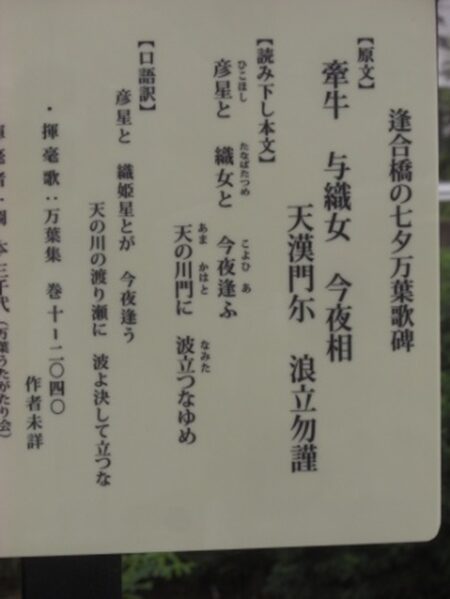 逢合橋の七夕万葉歌碑
【原文】
牽牛 与織女 今夜相
天漢門尓 浪立勿謹
【読み下し本文】
彦星と 織女と 今夜逢ふ
ひこほし たなばたつめ こよひ あ
天の川門に 波立つなゆめ
あま かはと なみた
【口語訳】
彦星と 織姫星とが 今夜逢う
天の川の渡り瀬に 波よ決して立つな
・揮毫歌:万葉集 巻十ー二〇四〇
作者未詳
本三千代(万葉うたがたり会)